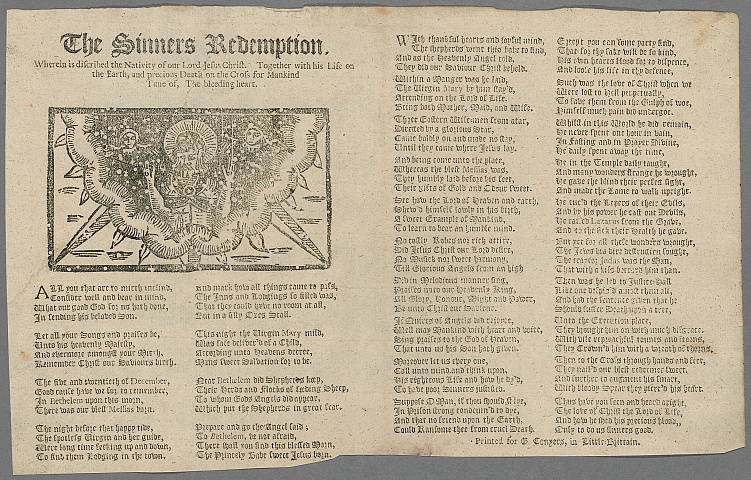 The Sinners Redemption.
Wherein is discribed the Nativity of our Lord Jesus Christ. Together with his Life on
the Earth, and precious Death on the Cross for Mankind
Tune of, The bleeding heart.
ALL you that are to mirth inclin'd,
Consider well and bear in mind,
What our good God for us hath done,
In sending his beloved Son.
Let all your Songs and praises be,
Unto his heavenly Majesty,
And evermore amongst your Mirth,
Remember Christ our Saviours birth.
The five and twentieth of December,
Good cause have we for to remember,
In Bethelem upon this morn,
There was our blest Messias born.
The night before that happy tide,
The spotless Virgin and her guide,
Were long time seeking up and down,
To find them Lodging in the town.
And mark how all things came to pass,
The Inns and Lodgings so filled was,
That they could have no room at all,
But in a silly Oxes Stall.
This night the Virgin Mary mild,
Was safe deliver'd of a Child,
According unto Heavens decree,
Mans sweet Salvation for to be.
Near Bethelem did Shepherds keep,
Their Herds and Flocks of feeding Sheep,
To whom Gods Angels did appear,
Which put the Shepherds in great fear.
Prepare and go the Angel said;
To Bethelem, be not afraid,
There shall you find this blessed Morn,
The Princely Babe sweet Jesus born.
With thankful hearts and joyful mind,
The shepherds went this babe to find,
And as the Heavenly Angel told,
They did our Saviour Christ behold.
Within a Manger was he laid,
The Virgin Mary by him stay'd,
Attending on the Lord of Life,
Being both Mother, Maid, and Wife.
Three Eastern Wise-men from afar,
Directed by a glorious Star,
Came boldly on and made no stay,
Until they came where Jesus lay.
And being come unto the place,
Whereas the blest Messias was,
They humbly laid before his feet,
Their Gifts of Gold and Odour sweet.
See how the Lord of Heaven and earth,
Shew'd himself lowly in his birth,
A sweet Example of Mankind,
To learn to bear an humble mind.
No costly Robes nor rich attire,
Did Jesus Christ our Lord desire,
No Musick nor sweet harmony,
Till Glorious Angels from on high
Did in Melodious manner sing,
Praises unto our Heavenly King,
All Glory, Honour, Might and Power,
Be unto Christ our Saviour.
If Quires of Angels did rejoyce,
Well may Mankind with heart and voice,
Sing praises to the God of Heaven,
That unto us his Son hath given.
Moreover let us every one,
Call unto mind and think upon,
His righteous Life and how he dy'd,
To have poor Sinners justifi'd.
Suppose O Man, if thou shouldst lye,
In Prison strong condemn'd to dye,
And that no friend upon the Earth,
Could Ransome thee from cruel Death.
Except you can some party find,
That for thy sake will be so kind,
His own hearts blood for to dispence,
And loose his life in thy defence.
Such was the love of Christ when we
Were lost to Hell perpetually,
To save them from the Gulph of woe,
Himself much pain did undergoe.
Whilst in this World he did remain,
He never spent one hour in vain,
In Fasting and in Prayer Divine,
He daily spent away the time,
He in the Temple daily taught,
And many wonders strange he wrought,
He gave the blind their perfect sight,
And made the Lame to walk upright.
He cur'd the Lepers of their Evils,
And by his power he cast out Devils,
He raised Lazarus from the Grave,
And to the sick their Health he gave.
But yet for all these wonders wrought,
The Jews his dire destruction sought,
The traytor Judas was the Man,
That with a kiss betray'd him than.
Then was he led to Justice-Hall,
Like one despis'd amidst them all;
And had the sentence given that he
Should suffer Death upon a tree.
Unto the Execution place,
They brought him on with much disgrace,
With vile reproachful taunts and scorns,
They Crown'd him with a wreath of thorns.
Then to the Cross through hands and feet,
They nail'd our blest redeemer sweet,
And further to augment his smart,
With bloody Spear they pierc'd his heart.
Thus have you seen and heard aright,
The love of Christ the Lord of Life,
And how he shed his precious blood,
Only to do us sinners good.
Printed for G. Conyers, in Little-Brittain.